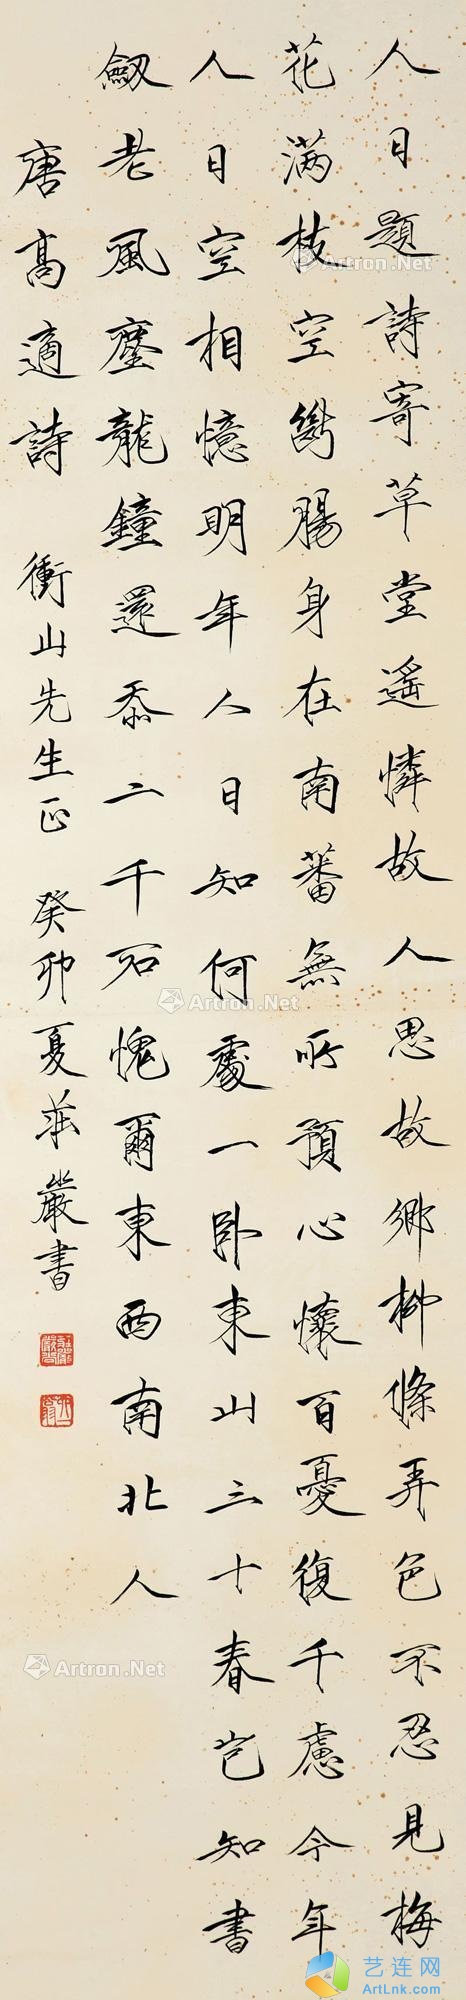 人日題詩寄草堂遙憐故人思故鄉柳條弄色不忍見梅
花滿枝空斷腸身在南蕃無所預心懷百憂復千慮今年
人日空相憶明年人日知何處一卧東山三十春豈知書
劔老風塵龍鐘還忝二千石愧爾東西南北人
唐高適詩 衝山先生正 癸卯夏莊嚴書
Artron.Net
Artron.Net
Artron.Net
Artron.Net
Artron.Net
Artron.Net
艺连网
ArtLnk.com